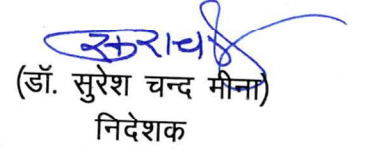 (डॉ. सुरेश चन्द मीना)
निदेशक